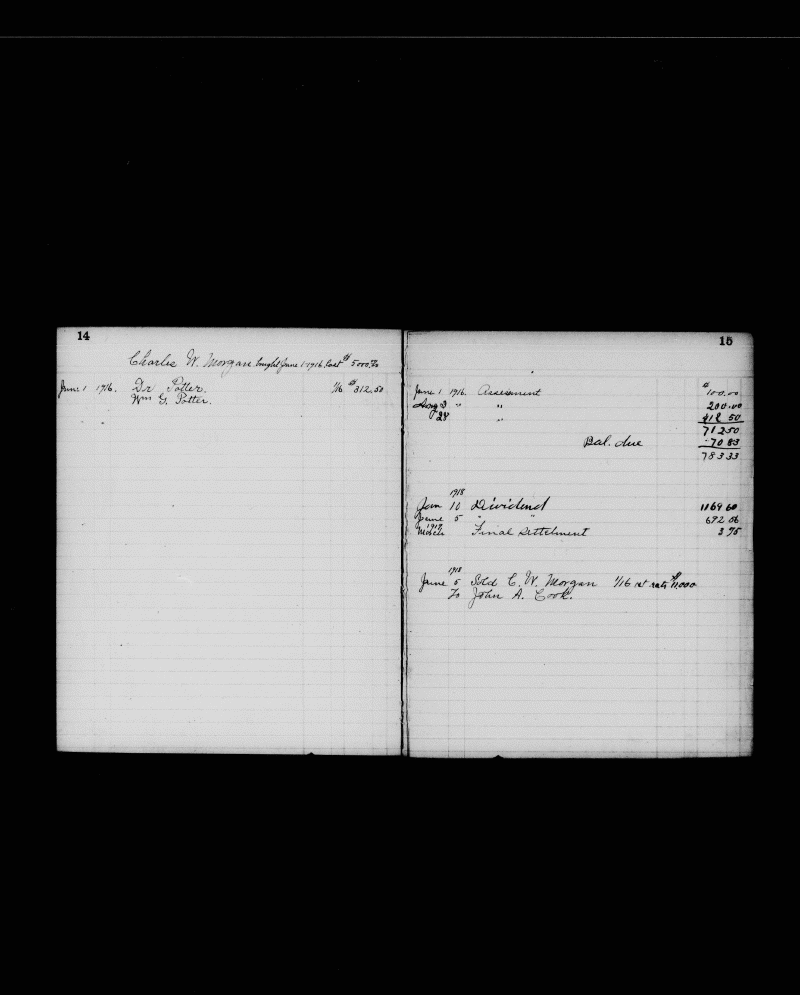 14
Charles W. Morgan bought June 1 1916. Cost $ 5000.00
June 1 1916. Dr Potter. 1/16 $ 312.50
Wm G. Potter.
15
June 1 1916. Assessment $ 100.00
Aug 3 " " 200.00
28 " 412 50
712 50
Bal. due 70 83
783 33
1918
Jan 10 Dividend 1169 60
June 5 " " 692 06
1919
March Final settelment 3 75
1918
June 5 Sold C. W. Morgan 1/16 at rate
To John A. Cook.